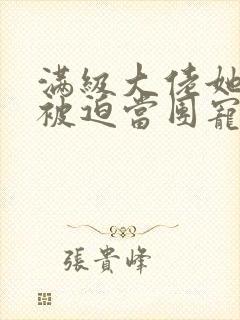 滿級大佬她
被迫當團寵
張貴峰